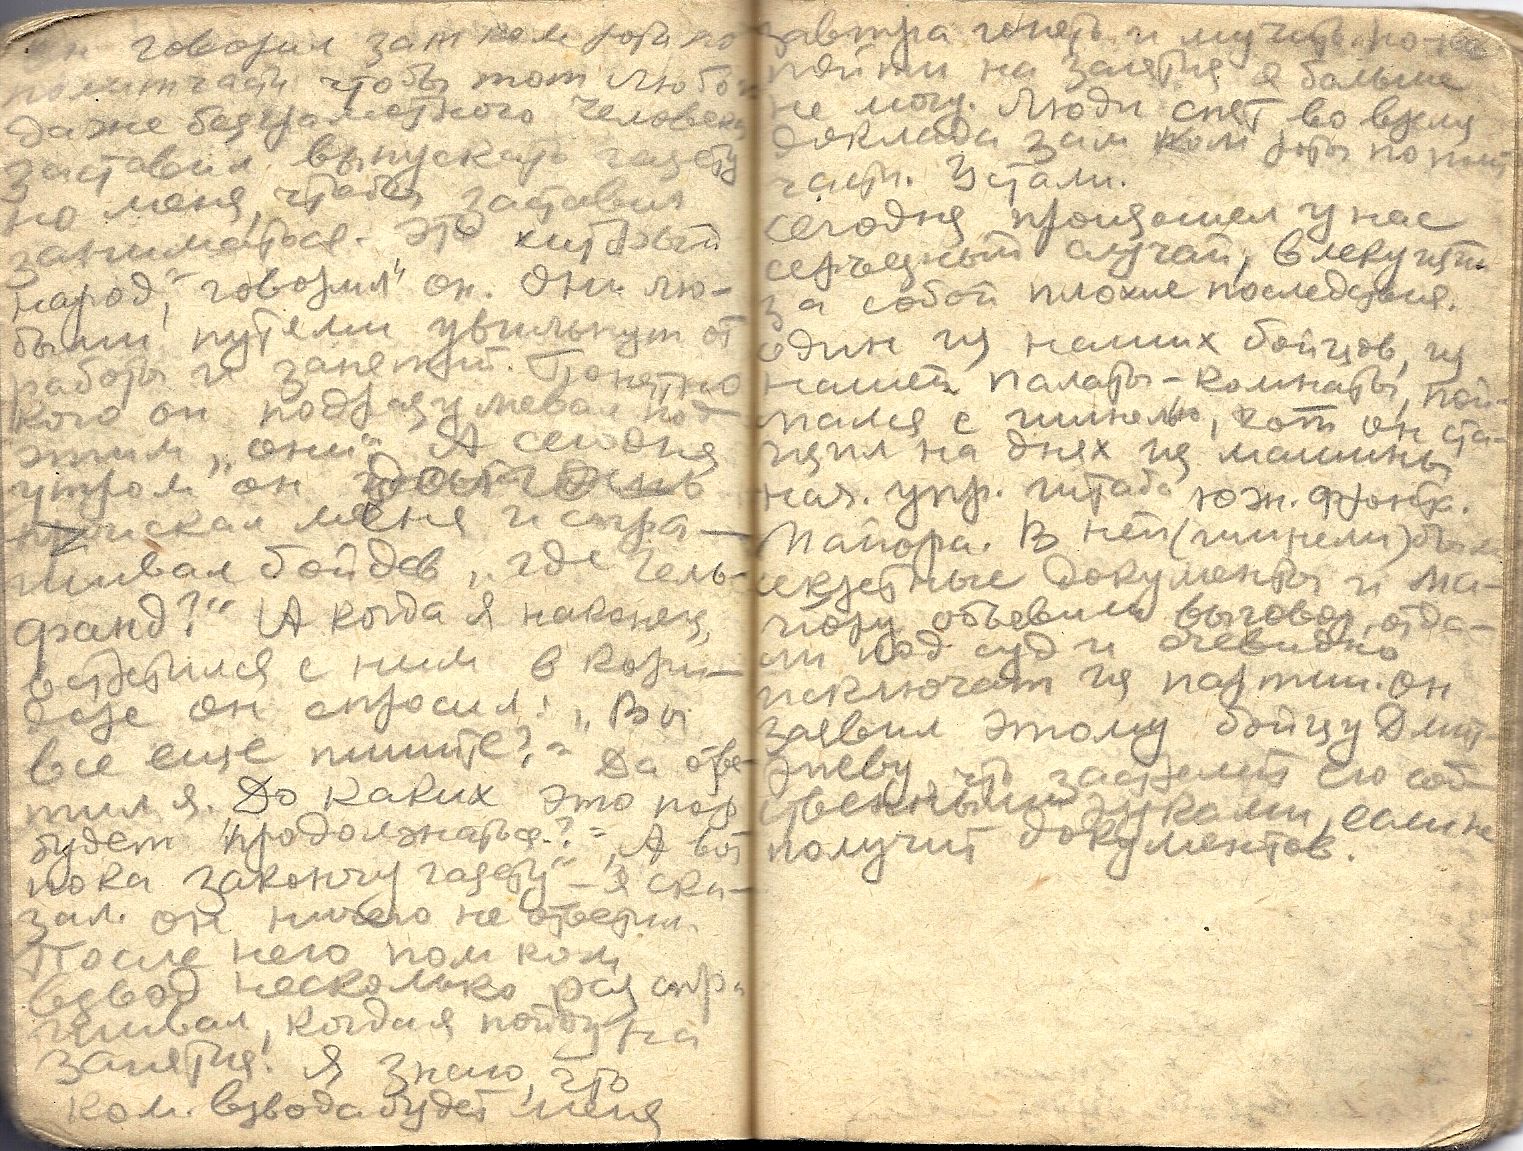 Он говорил зам ком роты по
политчасти чтобы тот любого
даже безграмотного человека
заставил выпускать газету
но меня, чтобы заставил
заниматься. "Это хитрый
народ," говорил он. Они лю-
быми путями увильнут от
работы и занятий. Понятно
кого он подразумевал под
этим „они". А сегодня
утром он
проискал меня и спра-
шивал бойцов „где Гель-
фанд?" А когда я наконец,
встретился с ним в кори-
доре он спросил: „Вы
все еще пишите?" Да отве-
тил я. До каких это пор
будет продолжаться?" „А вот
пока закончу газету" – я ска-
зал. Он ничего не ответил.
После него пом ком
взвод несколько раз спра
шивал, когда я пойду на
занятия. Я знаю, что
ком. взвода будет меня
завтра гонять и мучить но
пойти на занятия я больше
не могу. Люди спят во время
доклада зам ком роты по полит
части. Устали.
Сегодня произошел у нас
серьезный случай, влекущий
за собой плохие последствия.
Один из наших бойцов, из
нашей палаты-комнаты, пой-
мался с шинелью, кот он ста-
щил на днях из машины
нач. упр. штаба Юж. фронта.
Майора. В ней (шинели) были
секретные документы и ма-
йору объявили выговор, отда-
ли под суд и очевидно
исключат из партии. Он
заявил этому бойцу Дмит-
риеву, что застрелит его соб
ственными руками, если не
получит документов.